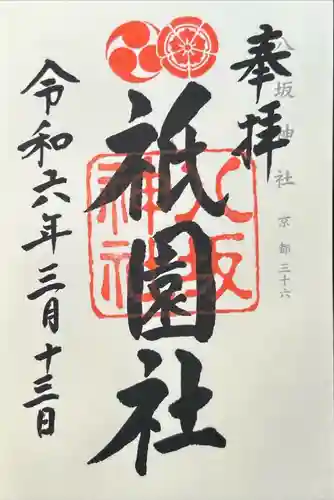 奉拝
八坂神社 京都三十六
祇園社
八坂神社
令和六年三月十三日